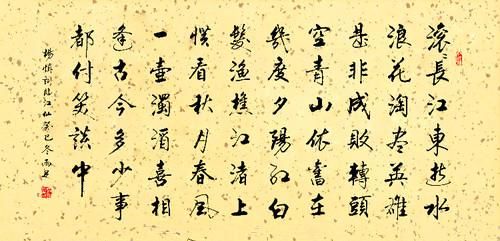 滾長江東逝水
浪花淘尽英雄
是非成敗轉頭
空青山依舊在
幾度夕陽紅白
髮漁樵江渚上
慣看秋月春風
一壺濁酒喜相
逢古今多少事
都付笑談中
楊慎詞臨江仙癸巳冬